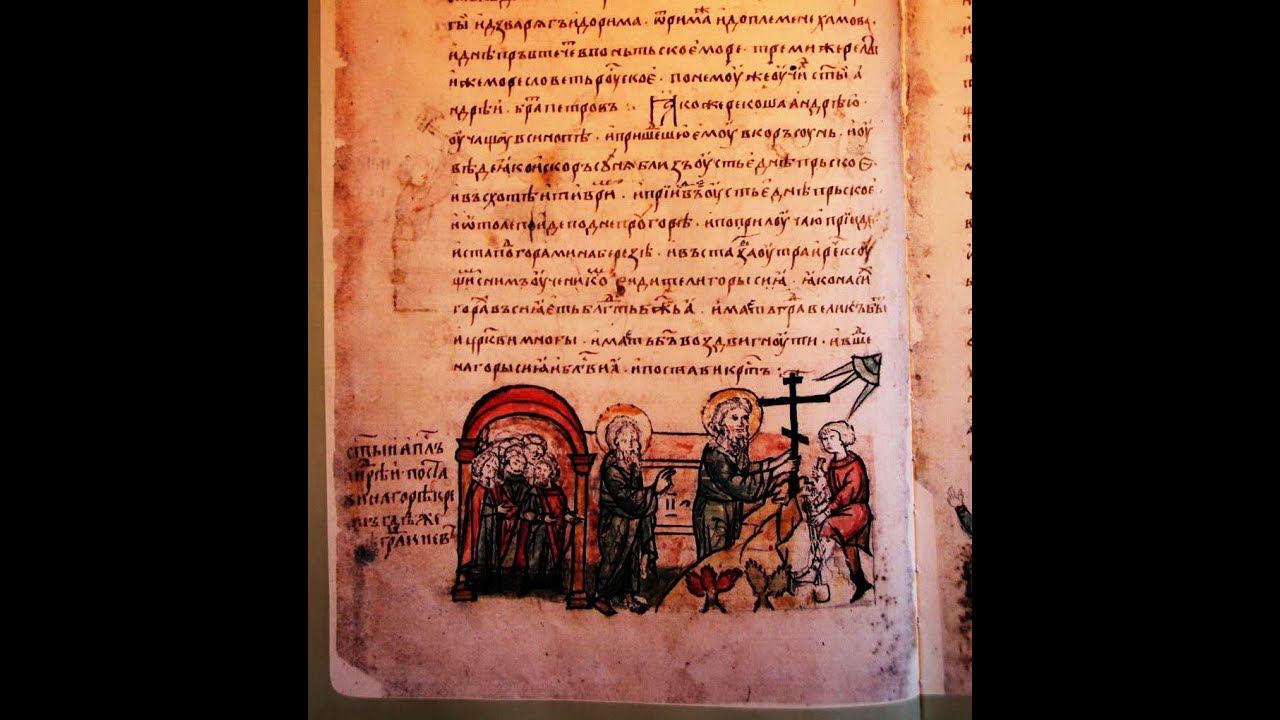 гы идуварягъ идорима · ѿрима же идоплемене хамова ·
иднѣпръвтечетьвпонтьскоеморе · треми жерелы
ижеморесловетьроускоє · понемоужеоучил ст҃ы а
ндрѣи · бра петровъ :· Ꙗкожерекоша андрѣю
оучащоувсинопѣ · ипришешюемоу вкоръсоунь · и оу
вѣде ꙗко искорсунѧ близъ оустье днѣпрьское
ивъсхотѣ ити в ри · иприиде въоустье днѣпрьскоє ·
и ѿтоле поиде по днепроу горѣ · ипоприлоучаю прииде
и ста подъ горами на березѣ · и въставъ заоутра и рече к соу
щи с нимъ оученикомъ видители горы сиꙗ · ꙗко на си
горахъ въсиꙗеть блгть бжьꙗ · имать градъ великъ бы
и цркви многы · имать бъ воздвигноути · и въше
на горы сиꙗ и блви ꙗ · и постави крстъ :
ст҃ыи апл҃ъ
андрѣи поста
ви на горѣ кре
стъ гдѣ же
градъ киевъ